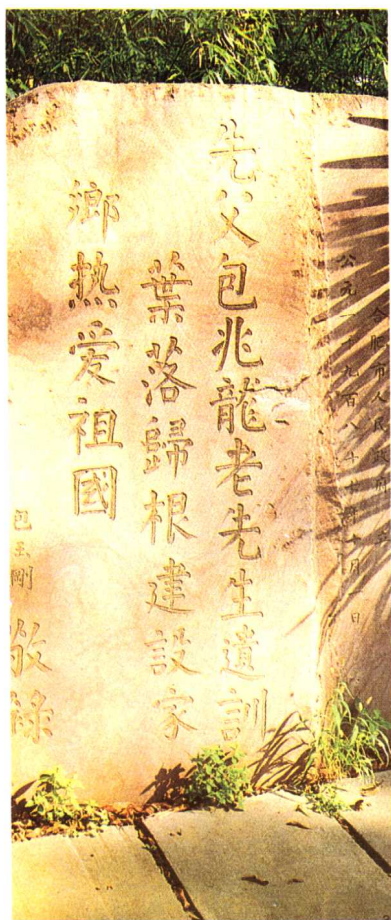 市人民政府
公元一千九百八十年十月一日
先父包兆龍老先生遺訓
葉落歸根建設家
鄉热爱祖國
包玉剛 敬錄